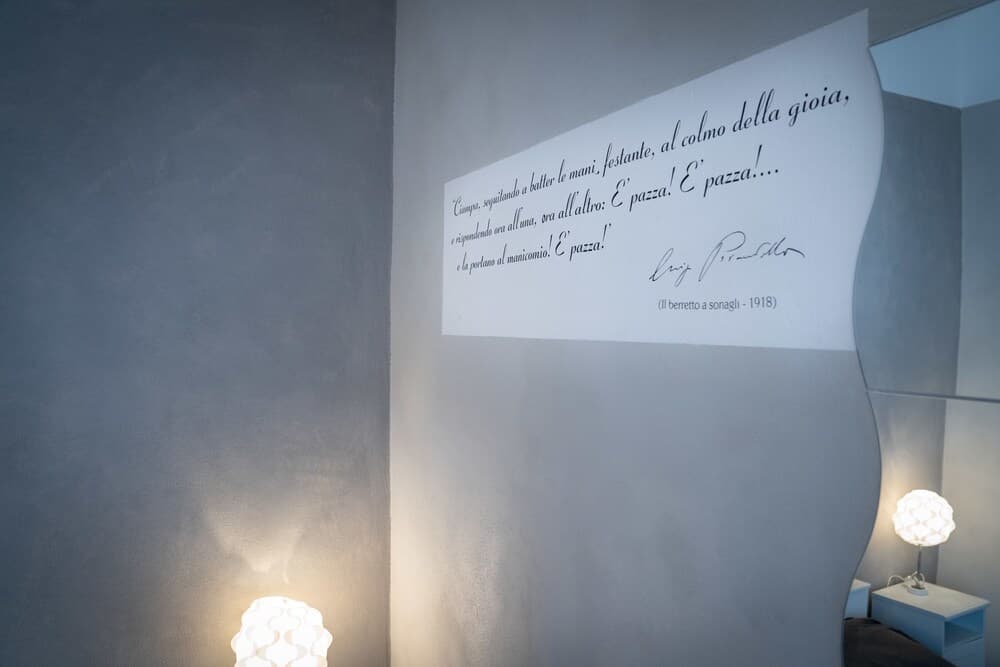 "Ciampa, seguitando a batter le mani, festante, al colmo della gioia,
e rispondendo ora all'una, ora all'altro: E' pazza! E' pazza!...
e la portano al manicomio! E' pazza!"
Luigi Pirandello
(Il berretto a sonagli - 1918)